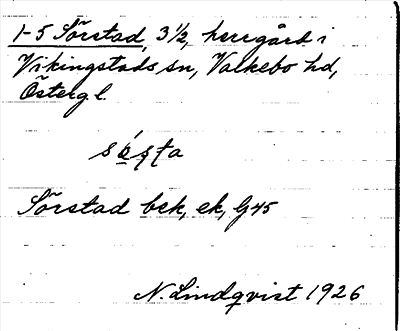 1-5 Sörstad, 3½, herrgård i
Vikingstads sn, Valkebo hd,
Östergl.
Sörstad bsk, ek, G45
N. Lindqvist 1926